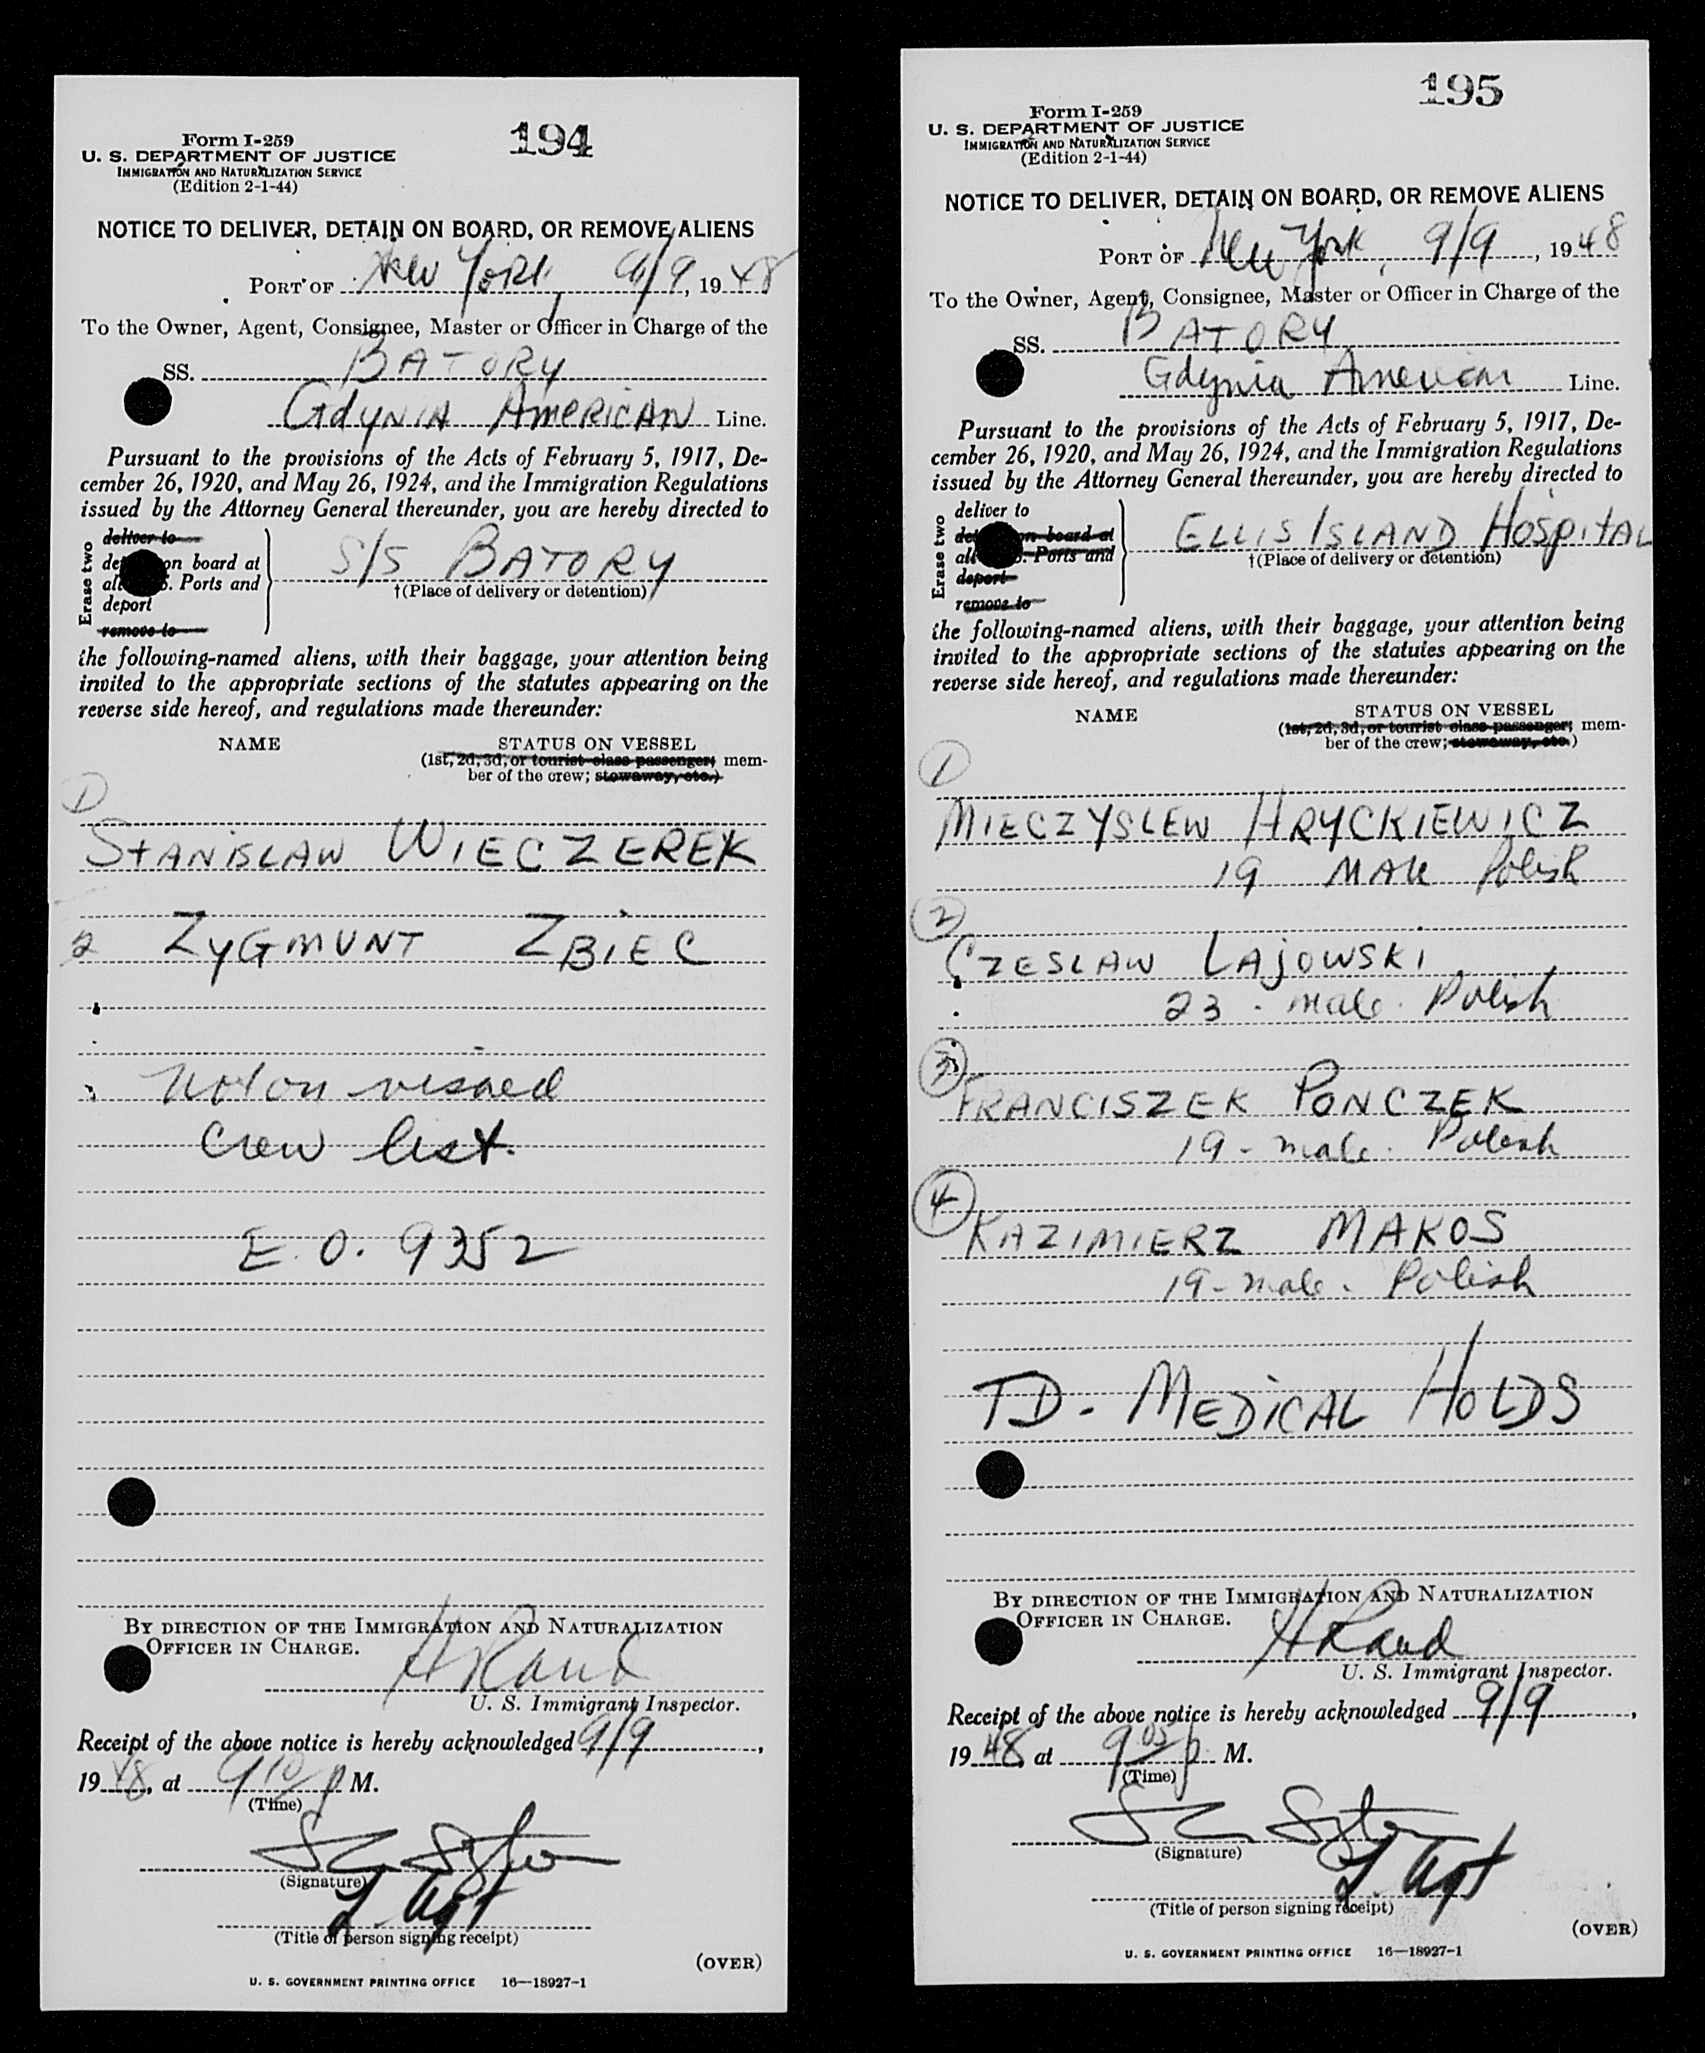 194
Form I-259
U. S. DEPARTMENT OF JUSTICE
IMMIGRATION AND NATURALIZATION SERVICE
(Edition 2-1-44)
NOTICE TO DELIVER, DETAIN ON BOARD, OR REMOVE ALIENS
PORT OF New York, 9/9, 1948
To the Owner, Agent, Consignee, Master or Officer in Charge of the
SS. BATORY
GdyNIA AMERICAN Line.
Pursuant to the provisions of the Acts of February 5, 1917, De-
cember 26, 1920, and May 26, 1924, and the Immigration Regulations
issued by the Attorney General thereunder, you are hereby directed to
Erase two
deliver to
on board at
S/S BATORY
Ports and
†(Place of delivery or detention)
deport
remove to
the following-named aliens, with their baggage, your attention being
invited to the appropriate sections of the statutes appearing on the
reverse side hereof, and regulations made thereunder:
NAME STATUS ON VESSEL
(1st, 2d, 3d, or tourist class passenger; mem-
ber of the crew; stowaway, etc.)
1
STANISLAW WIECZEREK
2 ZYGMUNT ZBIEC
Not on visaed
Crew list.
E.O. 9352
BY DIRECTION OF THE IMMIGRATION AND NATURALIZATION
OFFICER IN CHARGE.
HRand
U. S. Immigrant Inspector.
Receipt of the above notice is hereby acknowledged 9/9,
1948, at 9 10 p M.
(Time)
(Signature)
(Title of person signing receipt)
(OVER)
U. S. GOVERNMENT PRINTING OFFICE 16—18927-1
195
Form I-259
U. S. DEPARTMENT OF JUSTICE
IMMIGRATION AND NATURALIZATION SERVICE
(Edition 2-1-44)
NOTICE TO DELIVER, DETAIN ON BOARD, OR REMOVE ALIENS
PORT OF New York, 9/9, 1948
To the Owner, Agent, Consignee, Master or Officer in Charge of the
SS. BATORY
Gdynia American Line.
Pursuant to the provisions of the Acts of February 5, 1917, De-
cember 26, 1920, and May 26, 1924, and the Immigration Regulations
issued by the Attorney General thereunder, you are hereby directed to
Erase two
deliver to
on board at
ELLIS ISLAND HOSPITAL
Ports and
†(Place of delivery or detention)
deport
remove to
the following-named aliens, with their baggage, your attention being
invited to the appropriate sections of the statutes appearing on the
reverse side hereof, and regulations made thereunder:
NAME STATUS ON VESSEL
(1st, 2d, 3d, or tourist class passenger; mem-
ber of the crew; stowaway, etc.)
1
MIECZYSLEW HRYCKIEWICZ
19 MALE Polish
2
CZESLAW LAJOWSKI
23 - male. Polish
3
FRANCISZEK PONCZEK
19 - male. Polish
4
KAZIMIERZ MAKOS
19 - male. Polish
TD - MEDICAL HOLDS
BY DIRECTION OF THE IMMIGRATION AND NATURALIZATION
OFFICER IN CHARGE.
HRand
U. S. Immigrant Inspector.
Receipt of the above notice is hereby acknowledged 9/9,
1948 at 9 05 p M.
(Time)
(Signature)
(Title of person signing receipt)
(OVER)
U. S. GOVERNMENT PRINTING OFFICE 16—18927-1